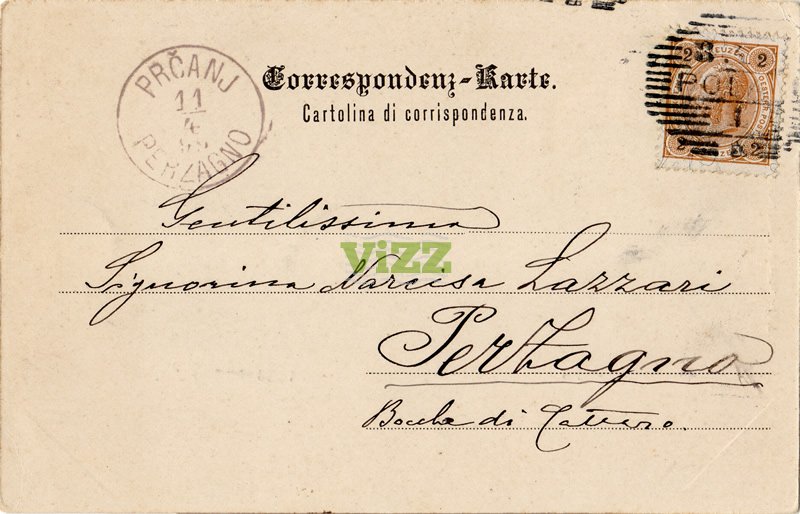 Correspondenz-Karte.
Cartolina di corrispondenza.
PRČANJ
11
4
PERZAGNO
2 2
8.
POL
1
2 2
Gentilissima
ViZZ
Signorina Narcisa Lazzari
Perzagno
Bocche di Cattaro.